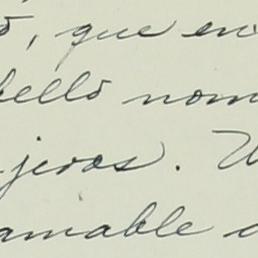 , que en
bello nom
jeros. U
amable